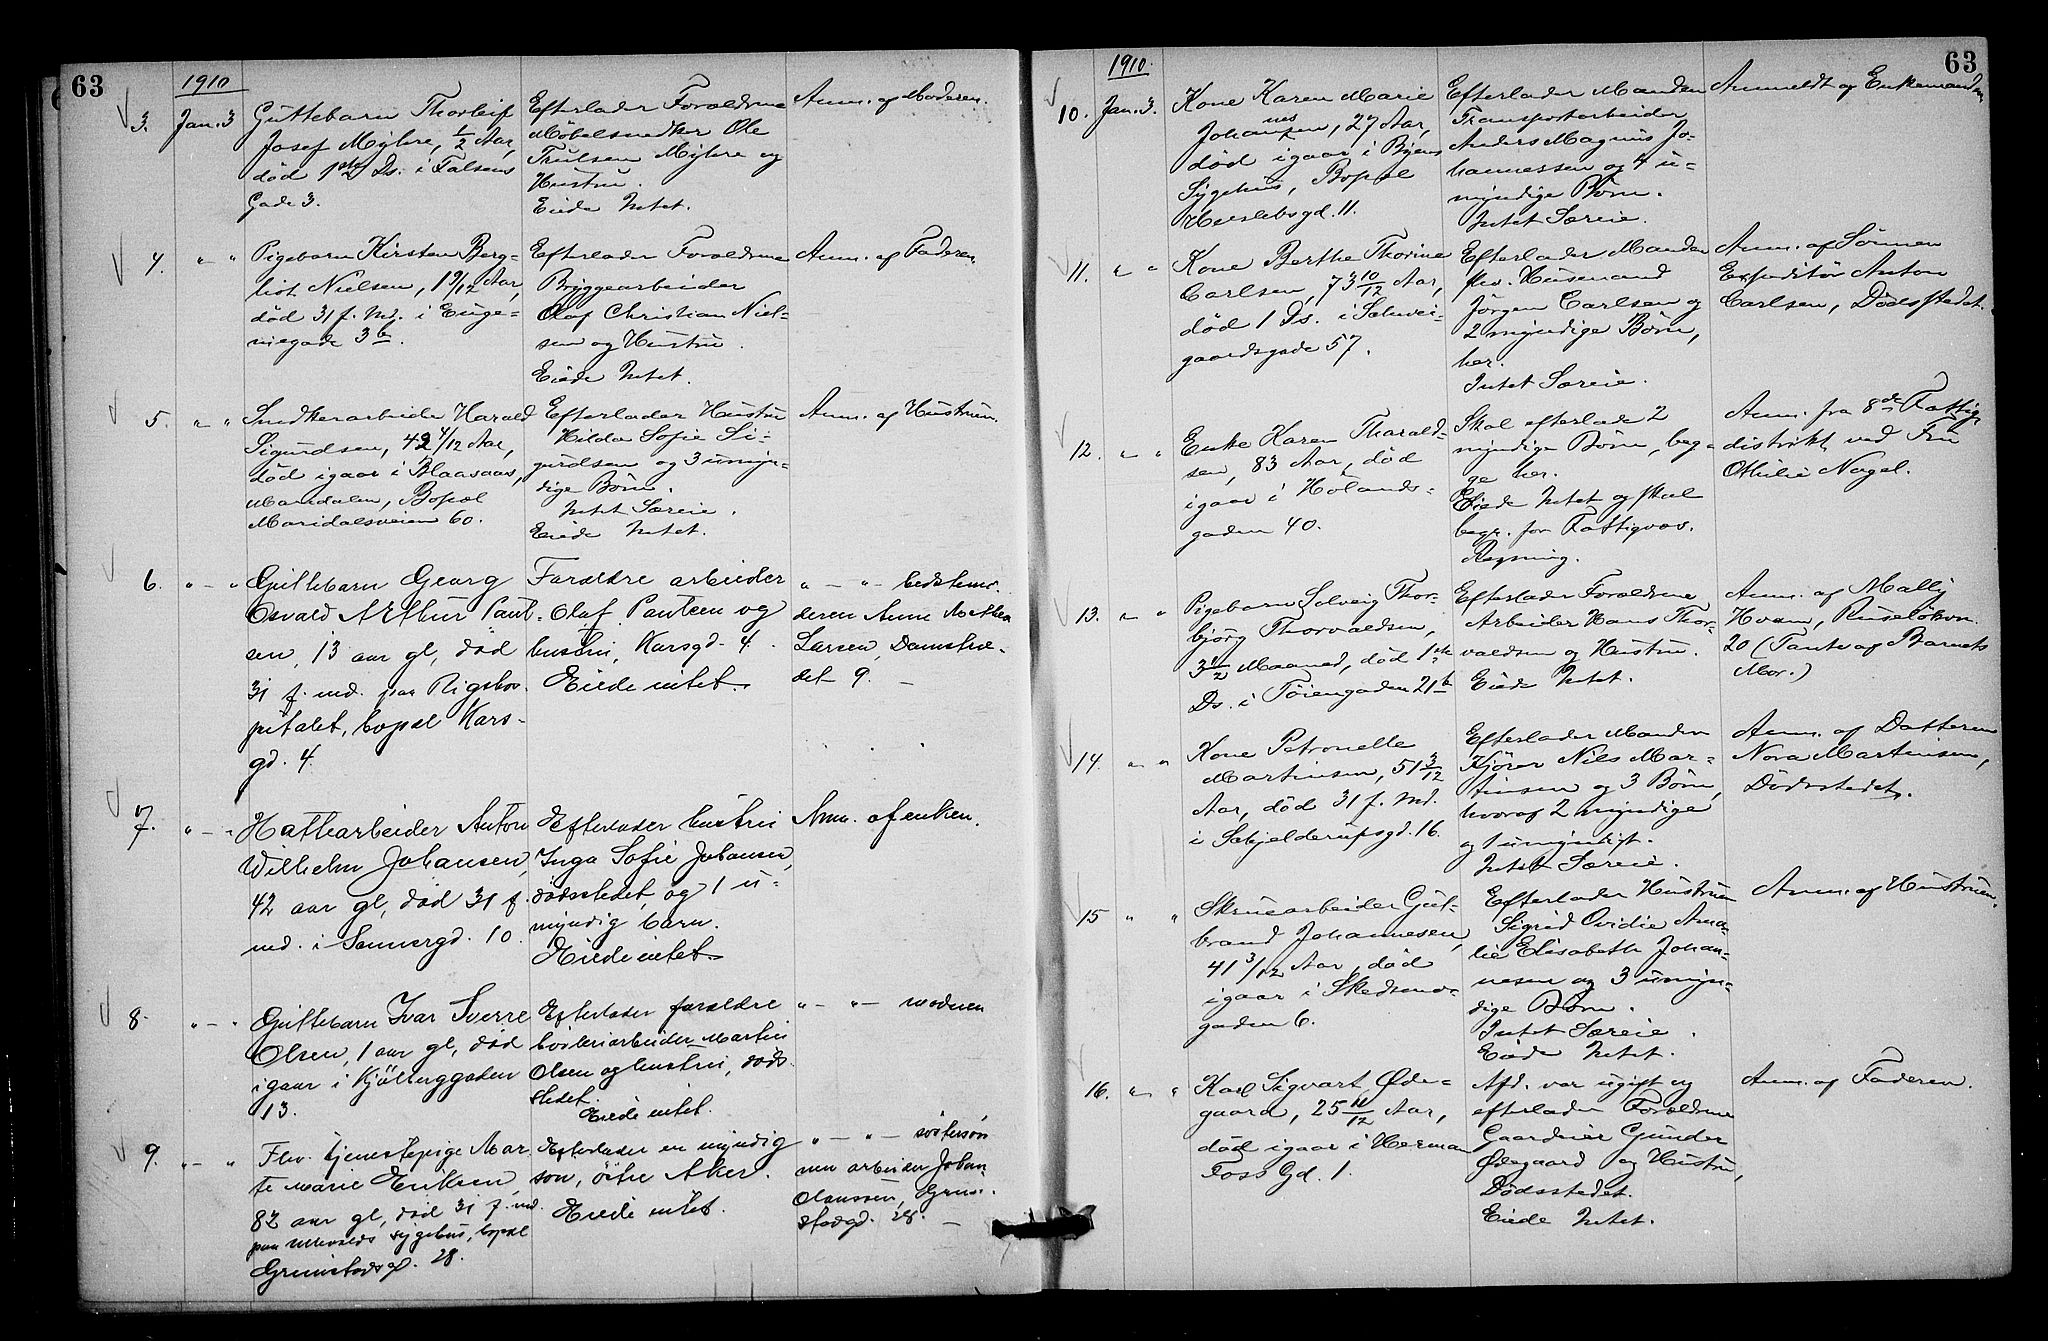 63
1910
3. Jan. 3 Guttebarn Thorleif
Josef Myhre, 1/2 Aar,
død 1ste Ds. i Falsens
Gade 3.
Efterlader Forældrene
Møbelsnedker Ole
Trulsen Myhre og
Hustru.
Eiede Intet.
Anm. af Moderen.
4. " - " Pigebarn Kirsten Berg-
liot Nielsen, 1 9/12 Aar,
død 31 f. Md. i Euge-
niegade 3 b.
Efterlader Forældrene
Bryggearbeider
Olaf Christian Niel-
sen og Hustru.
Eiede Intet.
Anm. af Faderen.
5. " - " Snedkerarbeider Harald
Sigurdsen, 42 4/12 Aar,
død igaar i Blaasaas,
Maridalen, Bopæl
Maridalsveien 60.
Efterlader Hustru
Hilda Sofie Si-
gurdsen og 3 umyn-
dige Børn.
Intet Særeie.
Eiede Intet.
Anm. af Hustruen.
6. " - " Guttebarn Georg
Osvald Arthur Paul-
sen, 13 aar gl, død
31 f. md. paa Rigshos-
pitalet, bopæl Kors-
gd. 4
Forældre arbeider
Olaf Paulsen og
hustru, Korsgd. 4.
Eiede intet.
" - " - bedstemo-
deren Anne
Larsen, Damstræ-
det 9. -
7. " - " Hattearbeider Anton
Wilhelm Johansen,
42 aar gl, død 31 f.
md. i Sannergd. 10
Efterlader hustru
Inga Sofie Johansen,
dødsstedet, og 1 u-
myndig barn.
Eiede intet.
Anm. af enken.
8. " - " Guttebarn Ivar Sverre
Olsen, 1 aar gl, død
igaar i Kjøllberggaden
13.
Efterlader forældre
arbeider Martin
Olsen og hustru, døds-
stedet.
Eiede intet.
" - " - moderen
9. " - " Fhv. tjenestepige Mar-
te Marie Eriksen
82 aar gl, død 31 f. md.
paa Ullevaals sygehus, bopæl
Grimstadgd. 28.
Efterlader en myndig
søn, østre Aker.
Eiede intet.
" - " - søstersøn-
nen arbeider Johan
Olaussen, Grim-
stadgd. 28. -
1910.
63
10. Jan. 3. Kone Karen Marie
Johannesen, 27 Aar,
død igaar i Byens
Sygehus, Bopæl
Heslebsgd. 11.
Efterlader Manden
Transportarbeider
Anders Magnus Jo-
hannessen og 4 u-
myndige Børn.
Intet Særeie.
Anmeldt af Enkemanden
11. " " Kone Berthe Thorine
Carlsen, 73 10/12 Aar,
død 1 Ds. i Schwei-
gaardsgade 57.
Efterlader Manden
fhv. Husmand
Jørgen Carlsen og
2 myndige Børn,
her.
Intet Særeie.
Anm. af Sønnen
Expeditør Anton
Carlsen, Dødsstedet.
12. " " Enke Karen Tharald-
sen, 83 Aar, død
igaar i Hølands-
gaden 40.
Skal efterlade 2
myndige Børn, beg-
ge her.
Eiede Intet og skal
begr. for Fattigvæs.
Regning.
Anm. fra 8de Fattig-
distrikt ved Fru
Othilie Nagel.
13. " " Pigebarn Solveig Thor-
bjørg Thorvaldsen,
3 1/2 Maaned, død 1ste
Ds. i Tøiengaden 21 b
Efterlader Forældrene
Arbeider Hans Thor-
valdsen og Hustru.
Eiede Intet.
Anm. af Mally
Hvam, Ruseløkvn.
20 (Tante af Barnets
Mor.)
14. " " Kone Petronelle
Martinsen, 51 3/12
Aar, død 31 f. Md.
i Schjelderupsgd. 16.
Efterlader Manden
Kjører Nils Mar-
tinsen og 3 Børn,
hvoraf 2 myndige
og 1 umyndigt.
Intet Særeie.
Anm. af Datteren
Nora Martinsen,
Dødsstedet.
15 " " Skruearbeider Gul-
brand Johannesen,
41 3/12 Aar, død
igaar i Skedsmo-
gaden 6.
Efterlader Hustruen
Sigrid Ovidie Ama-
lie Elisabeth Johan-
nesen og 3 umyn-
dige Børn.
Intet Særeie.
Eiede Intet.
Anm. af Hustruen.
16. " " Karl Sigvart Øde-
gaard, 25 11/12 Aar,
død igaar i Herman
Foss Gd. 1.
Afd. var ugift og
efterlader Forældrene
Gaardeier Gunder
Ødegaard og Hustru,
Dødsstedet.
Eiede Intet.
Anm. af Faderen.